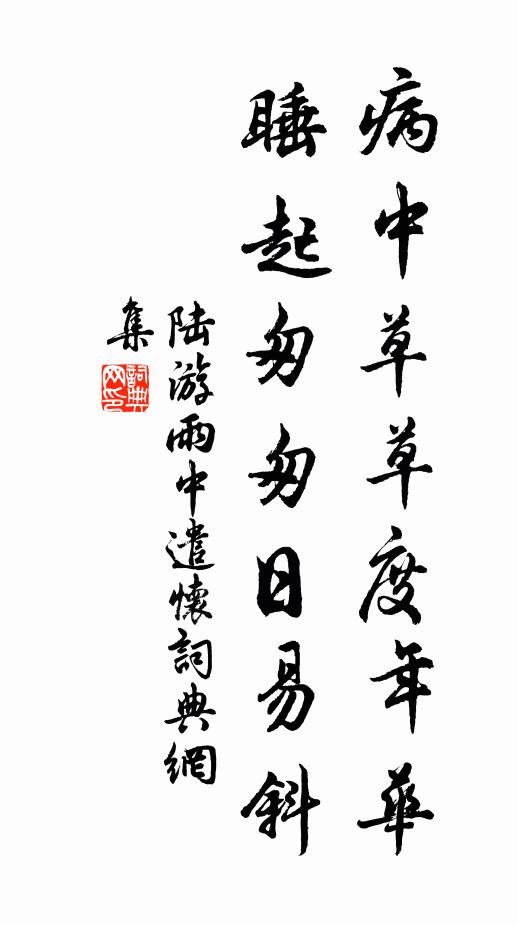 病中草草度年華
睡起匆匆日易斜
陆游雨中遣懷詞典網
集
詞典
网印